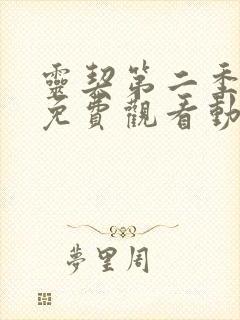 靈契第二季
免費觀看動
夢里周